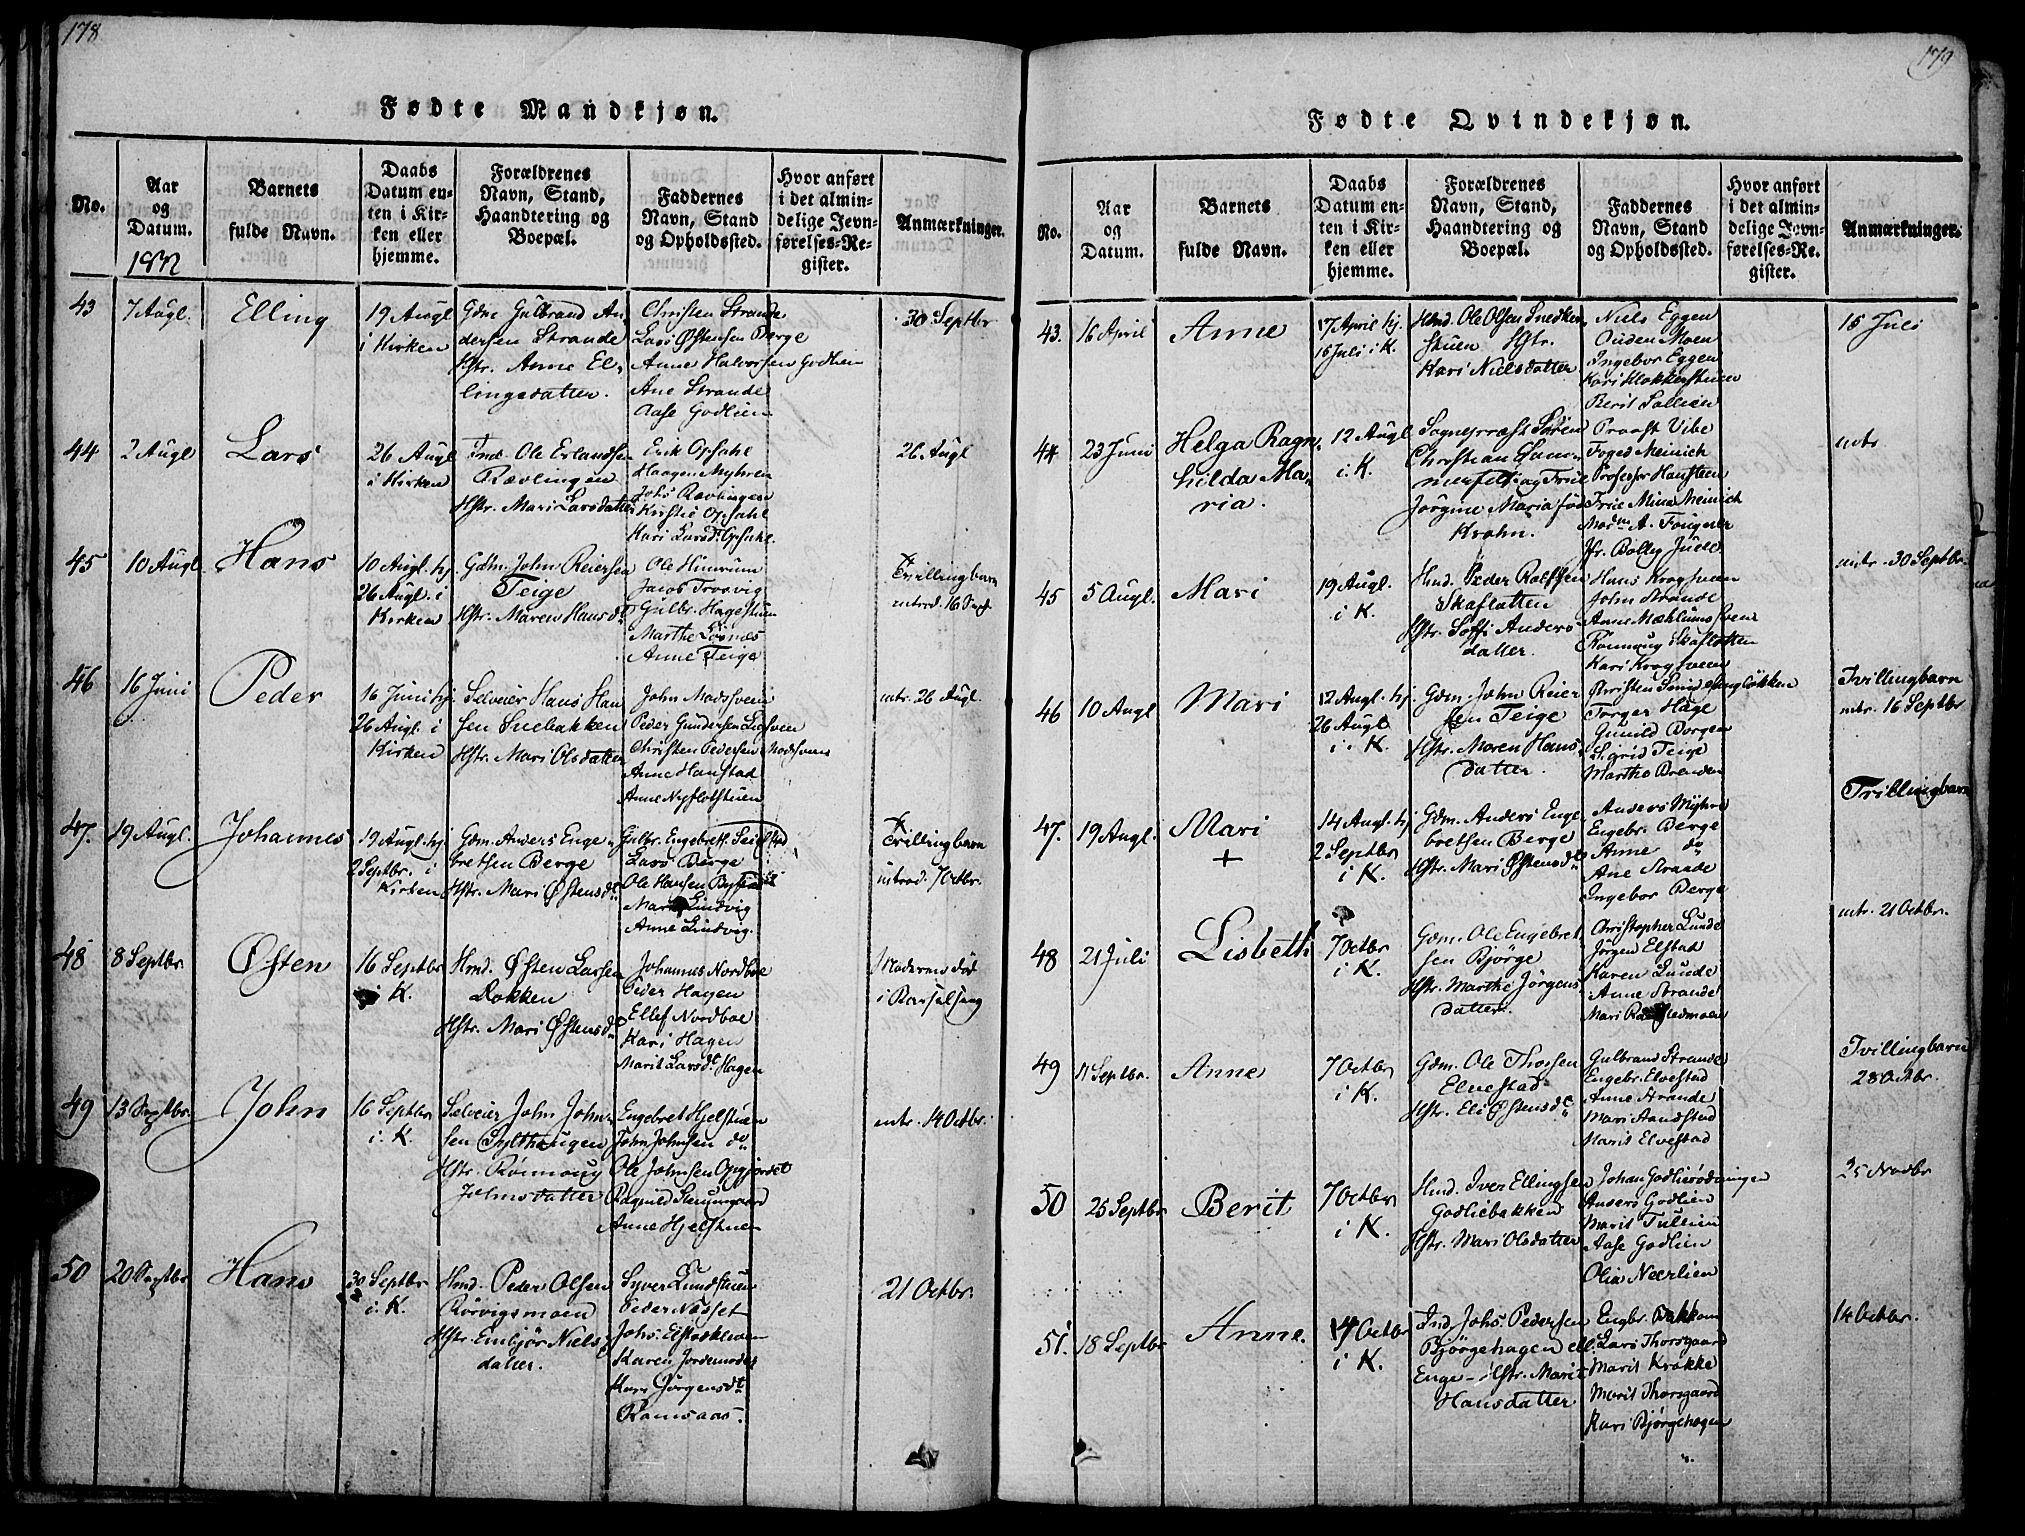 178
Fødte Mandkjøn.
No.
Aar
og
Datum.
Barnets
fulde Navn.
Daabs
Datum en-
ten i Kir-
ken eller
hjemme.
Forældrenes
Navn, Stand,
Haandtering og
Boepæl.
Faddernes
Navn, Stand
og Opholdssted.
Hvor anført
i det almin-
delige Jevn-
førelses-Re-
gister.
Anmærkninger.
43
7 Augl.
Elling
19 Augl
i Kirken
Gdm Gulbrand An
dersen Strande
Hstr. Anne El-
lingsdatter.
Christen Strande
Lars Østensen Berge
Anne Halvorsen Godlien
Ane Strande
Aase Godlien
30 Septbr
44
2 Augl
Lars
26 Augl
i Kirken
Ind. Ole Erlandsen
Rævlingen
Hstr. Mari Larsdatter
Erik Opsahl
Haagen Myhren
Johs Rævlingen
Kirstie Opsahl
Kari Larsd. Opsahl
26 Augl
45
10 Augl
Hans
10 Augl. hj.
26 Augl. i
Kirken
Gdm. John Reiersen
Teige
Hstr. Maren Hansd.
Ole Himrum
Jacob
Gulbr. Hagestuen
Marthe
Anne Teige
Tvillingbarn
introd. 16 Sept.
46
16 Juni
Peder
16 Juni hj
26 Augl. i
Kirken
Selveier Hans Han
sen Suebakken
Hstr. Mari Olsdatter
John Madssveen
Peder Gundersen
Christen Pedersen Madssveen
Anne Hanstad
Anne Nyflotstuen
intr. 26 Augl.
47.
19 Augl.
Johannes
19 Augl. hj.
2 Septbr. i
Kirken
Gdm. Anders Enge-
bretsen Berge
Hstr. Mari Østensd.
Gulbr. Engebretl.
Lars Berge
Ole Hansen
Mari Lindvig
Anne Lindvig.
Tvillingbarn
introd. 7 Octbr.
48
8 Septbr
Østen
16 Septbr
i K.
Hmd. Østen Larsen
Løkken
Hstr. Mari Østensd.
Johannes Nordboe
Peder Hagen
Ellef Nordboe
Kari Hagen
Marit Larsd. Hagen
Moderen død
i Barselseng
49
13 Septbr.
John
16 Septbr
i. K.
Selveier John John-
sen Sylthaugen
Hstr. Rønnoug
Johnsdatter
Engebret Hjelstuen
John Johnsen do
Ole Johnsen Opgjordet
Ragnild
Anne Hjelstuen
intr. 14 Octbr.
50
20 Septbr
Hans
30 Septbr
i. K.
Hmd. Peder Olsen
Rørvigsmoen
Hstr. Embjør Niels-
datter.
Syver Lundstuen
Peder Næsset
Johs. Elstadkleven
Karen Jordemoder
Kari Jørgensd.
Ramsaas.
21 Octbr.
179
Fødte Qvindekjøn.
No.
Aar
og
Datum.
Barnets
fulde Navn.
Daabs
Datum en-
ten i Kir-
ken eller
hjemme.
Forældrenes
Navn, Stand,
Haandtering og
Boepæl.
Faddernes
Navn, Stand
og Opholdssted.
Hvor anført
i det almin-
delige Jevn-
førelses-Re-
gister.
Anmærkninger.
43.
16 April
Anne
17 April hj.
15 Juli i K.
Hmd. Ole Olsen Snedker
stuen Hstr.
Kari Nielsdatter
Niels Eggen
Ouden Moen
Ingebor Eggen
Kari Klokkerstuen
Berit Sollien
15 Juli
44
23 Juni
Helga Ragn-
hilda Ma-
ria.
12 Augl
i. K.
Sognepræst Søren
Christian Som-
merfelt og Frue
Jørgine Maria fød
Krohn.
Praast Vibe
Foged Meinich
Professor Hansteen
Frue Mina Meinich
Madm A. Fougner
Jfr. Bolly Juell
intr
45
5 Augl.
Mari
19 Augl.
i K.
Hmd. Peder Rolfsen
Skaflotten
Hstr. Soffi Anders-
datter.
Hans Krogsveen
John Strande
Anne Mæhlumssveen
Rønnoug Skaflotten
Kari Krogsveen
intr. 30 Septbr.
46
10 Augl
Mari
12 Augl. hj
26 Augl
i. K.
Gdm. John Reier
sen Teige
Hstr. Maren Hans-
datter.
Christen
Torger Hage
Gunild Borgen
Sigrid Teige
Marthe Brenden
Tvillingbarn
intr. 16 Septbr
47.
19 Augl.
Mari
+
14 Augl. hj
2 Septbr
i K.
Gdm. Anders Enge
bretsen Berge
Hstr. Mari Østensd.
Anders Myhre
Engebr. Berge
Anne do
Ane Strande
Ingebor Berge
Tvillingbarn
48
21 Juli
Lisbeth
7 Octbr
i K.
Gdm. Ole Engebret
sen Bjørge
Hstr. Marthe Jørgens-
datter.
Christopher Lunde
Jørgen Elstad
Karen Lunde
Anne Strande
Mari
intr. 21 Octbr.
49
11 Septbr.
Anne
7 Octbr
i K.
Gdm. Ole Thorsen
Elvestad
Hstr. Eli Østensd.
Gulbrand Strande
Engebr. Elvestad
Anne Strande
Mari Aandstad
Marit Elvestad
Tvillingbarn
28 Octbr.
50
25 Septbr
Berit
7 Octbr
i K.
Hmd. Iver Ellingsen
Godliebakken
Hstr. Mari Olsdatter
Johan Godlierødningen
Anders Godlien
Marit Tullien
Aase Godlien
Olia Nærlien
25 Novbr
51.
18 Septbr
Anne.
14 Octbr
i K.
Ind. Johs. Pedersen
Bjørgehagen ell.
Enge - Hstr. Marit
Hansdatter
Engbr. Bakken
Lars Thorsgaard
Marit Krøkke
Marit Thorsgaard
Kari Bjørgehagen
14 Octbr.